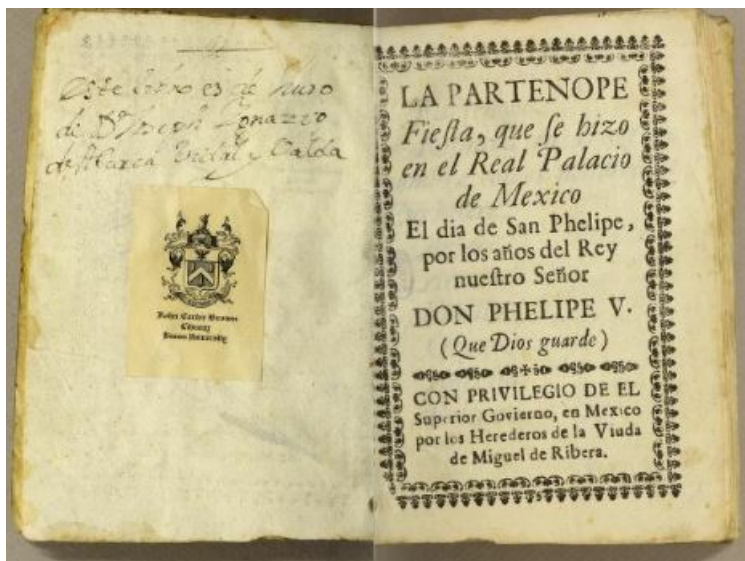 este libro es de huso
de Dn Joseph Ygnazzio
de Vidal y
John Carter Brown
Library
Brown University
LA PARTENOPE
Fieſta, que ſe hizo
en el Real Palacio
de Mexico
El dia de San Phelipe,
por los años del Rey
nueſtro Señor
DON PHELIPE V.
(Que Dios guarde)
CON PRIVILEGIO DE EL
Superior Govierno, en Mexico
por los Herederos de la Viuda
de Miguel de Ribera.